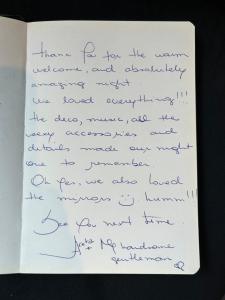 thank for for the warm
welcome, and absolutely
amazing night
We loved everything!!!
the deco, music, all the
sexy accessories and
details made our night
one to remember
Oh yes, we also loved
the mirrors ☺ humm!!!
See you next time..
+ Mr handsome
gentleman